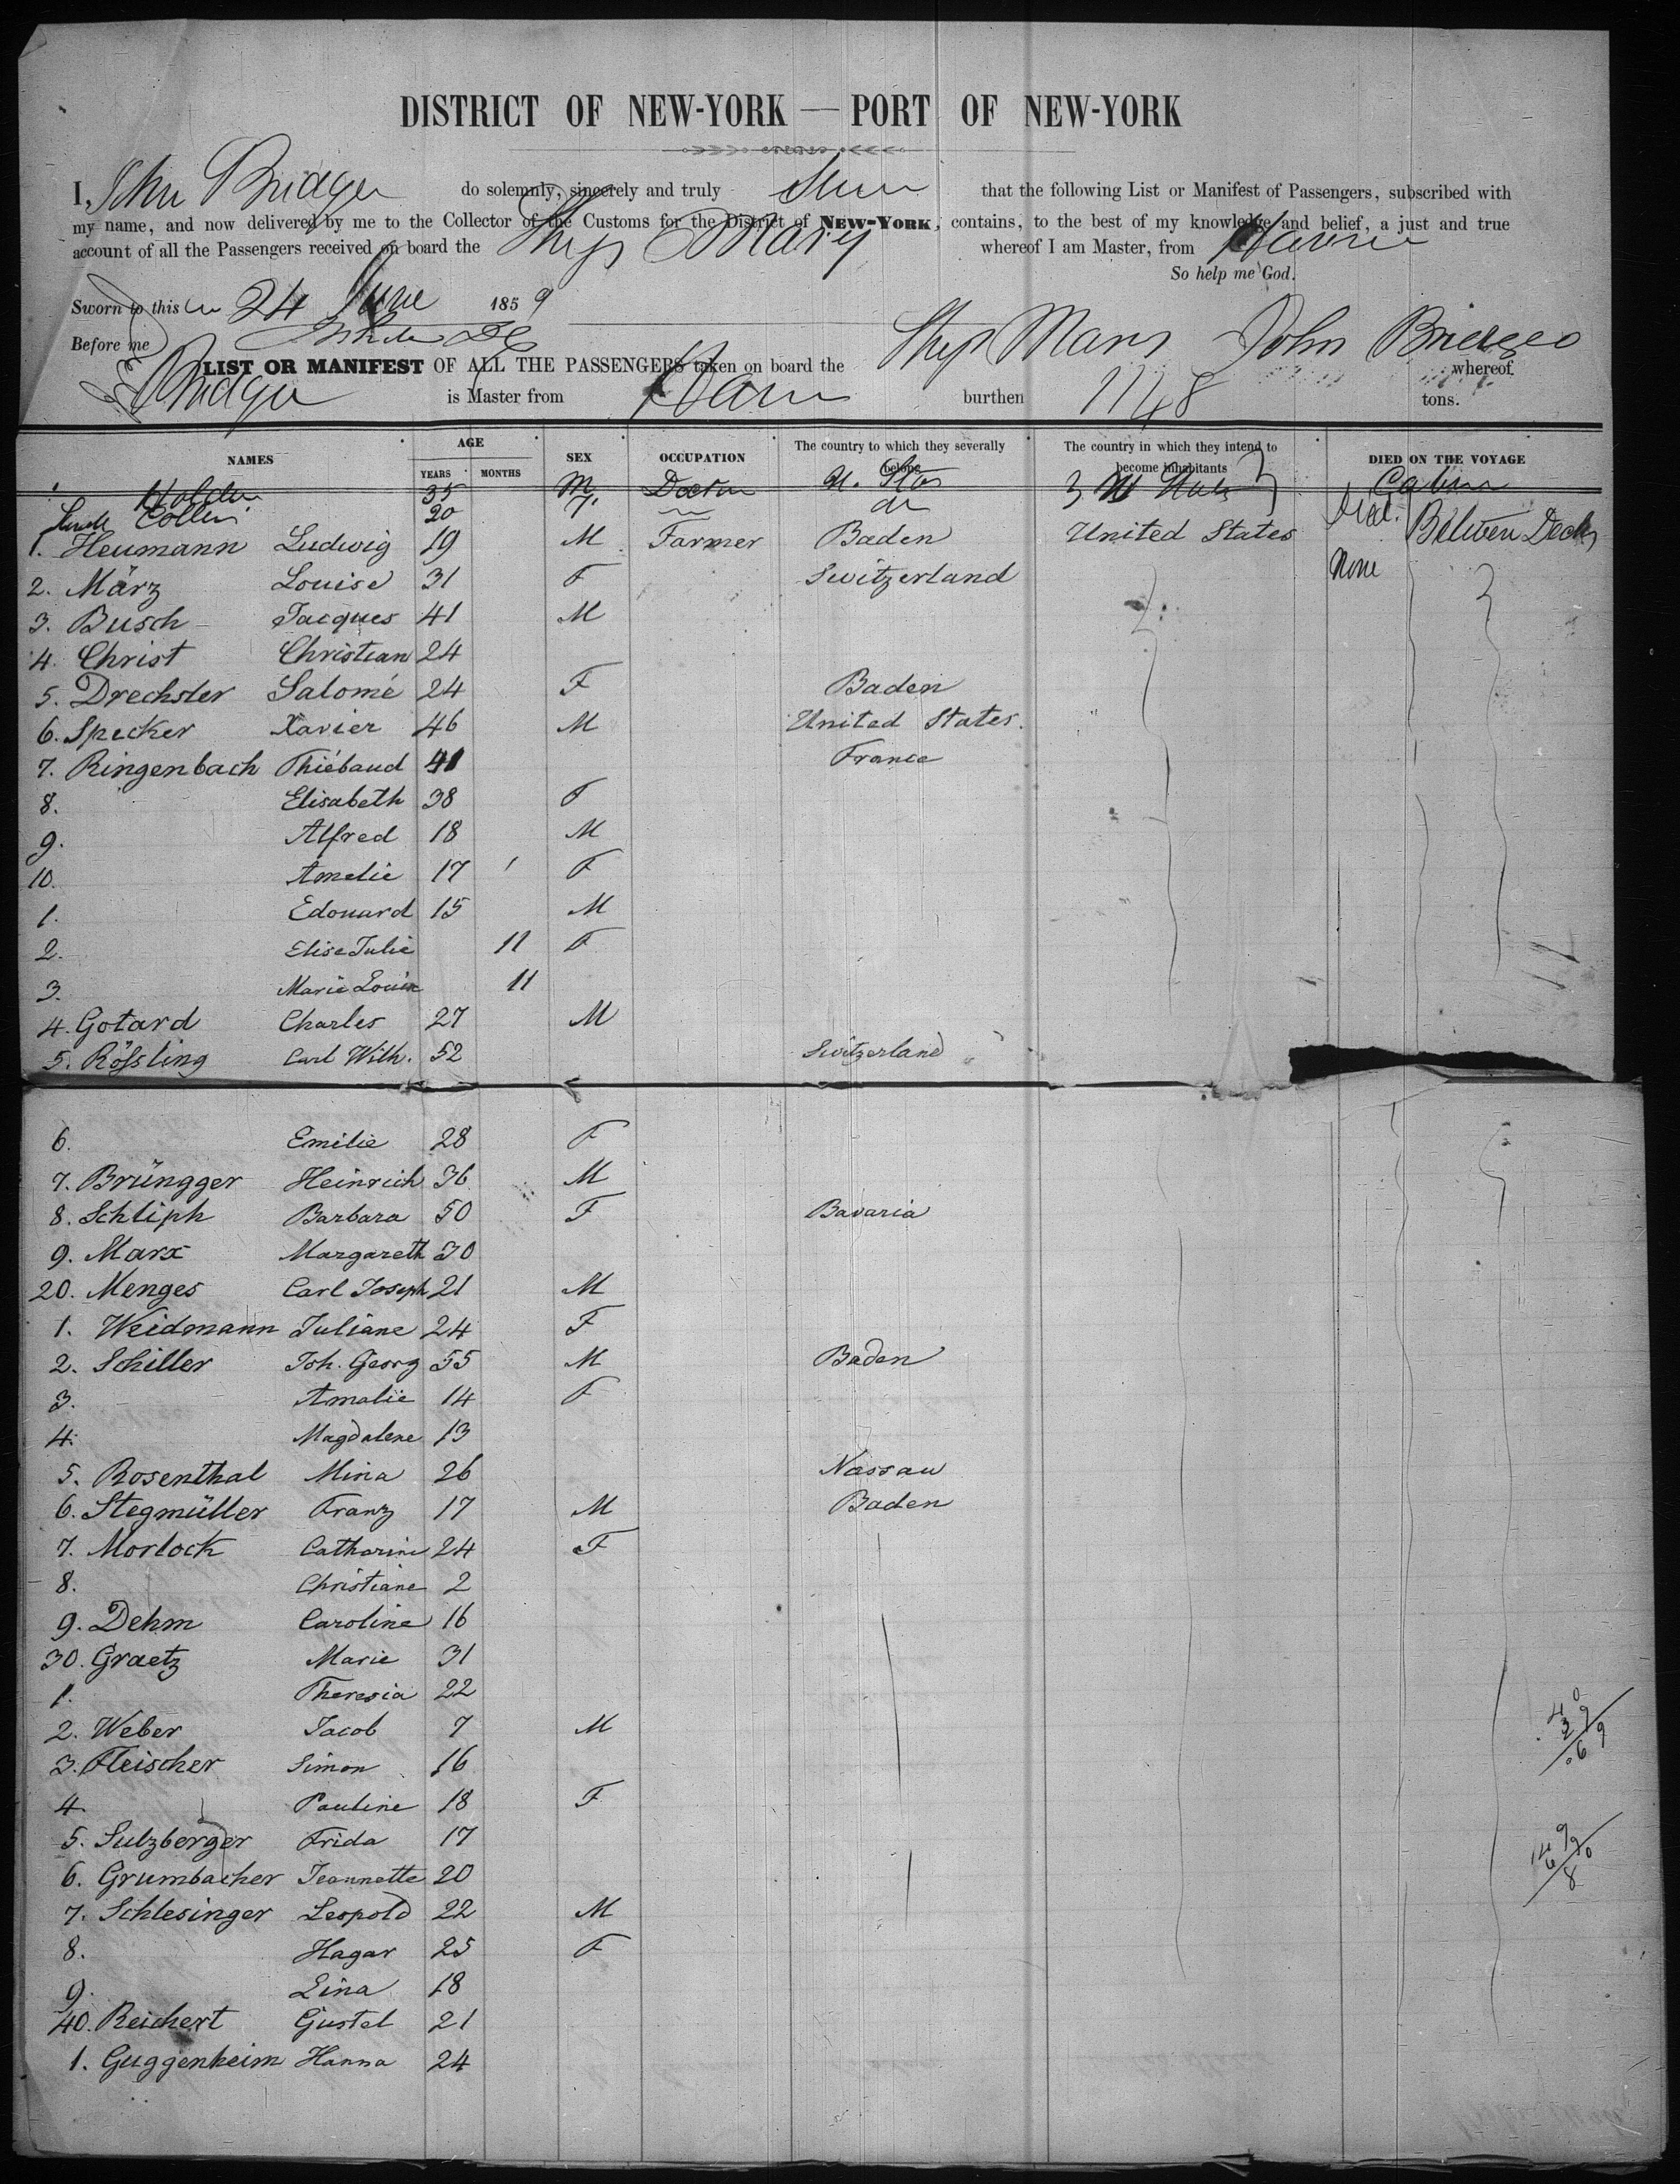 DISTRICT OF NEW-YORK — PORT OF NEW-YORK
I, John Bridges do solemnly, sincerely and truly that the following List or Manifest of Passengers, subscribed with
my name, and now delivered by me to the Collector of the Customs for the District of NEW-YORK, contains, to the best of my knowledge and belief, a just and true
account of all the Passengers received on board the Ship Mary whereof I am Master, from Havre
So help me God.
Sworn to this 24 June 1859
Before me
LIST OR MANIFEST OF ALL THE PASSENGERS taken on board the Ship Mary John Bridges whereof
Bridges is Master from Havre burthen 1148 tons.
NAMES AGE YEARS MONTHS SEX OCCUPATION The country to which they severally belong The country in which they intend to become inhabitants DIED ON THE VOYAGE
Holden 35 M Doctor U. Stas U States Cabin
Collin 20 F. do
1. Heumann Ludwig 19 M Farmer Baden United States Between Decks
2. März Louise 31 F Switzerland None
3. Busch Jacques 41 M
4. Christ Christian 24
5. Drechsler Salomé 24 F Baden
6. Specker Xavier 46 M United States.
7. Ringenbach Thiébaud 41 France
8. Elisabeth 38 F
9. Alfred 18 M
10. Amelie 17 F
1. Edouard 15 M
2. Elise Julie 11 F
3. Marie Louise 11
4. Gotard Charles 27 M
5. Rößling Carl Wilh. 52 Switzerland
6. Emilie 28 F
7. Brüngger Heinrich 36 M
8. Schliph Barbara 50 F Bavaria
9. Marx Margareth 30
20. Menges Carl Joseph 21 M
1. Weidmann Juliane 24 F
2. Schiller Joh. Georg 55 M Baden
3. Amalie 14 F
4. Magdalene 13
5. Rosenthal Mina 26 Nassau
6. Stegmüller Franz 17 M Baden
7. Morlock Catharine 24 F
8. Christiane 2
9. Dehm Caroline 16
30. Graetz Marie 31
1. Theresia 22
2. Weber Jacob 7 M
3. Fleischer Simon 16
4. Pauline 18 F
5. Sulzberger Frida 17
6. Grumbacher Jeannette 20
7. Schlesinger Leopold 22 M
8. Hagar 25 F
9. Lina 18
40. Reichert Gustel 21
1. Guggenheim Hanna 24